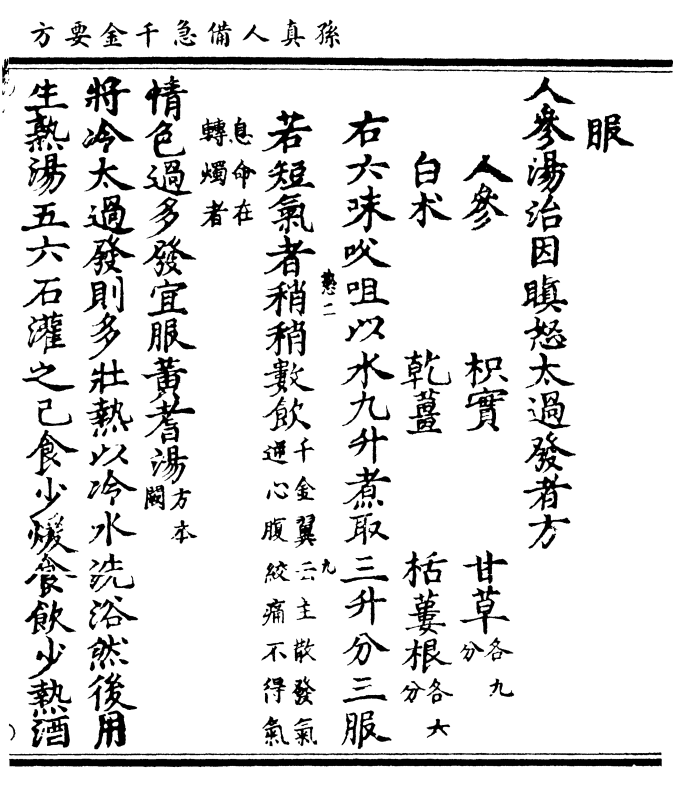 孫真人備急千金要方
服
人參湯治因瞋怒太過發者方
人參 枳實 甘草各九分
白术 乾薑 栝蔞根各六分
右六味㕮咀以水九升煮取三升分三服
若短氣者稍稍數飲千金翼云主散發氣逆心腹絞痛不得氣
九
息命在轉燭者
情色過多發宜服黃耆湯方本闕
將冷太過發則多壯熱以冷水洗浴然後用
生熟湯五六石灌之已食少煖食飲少熱酒